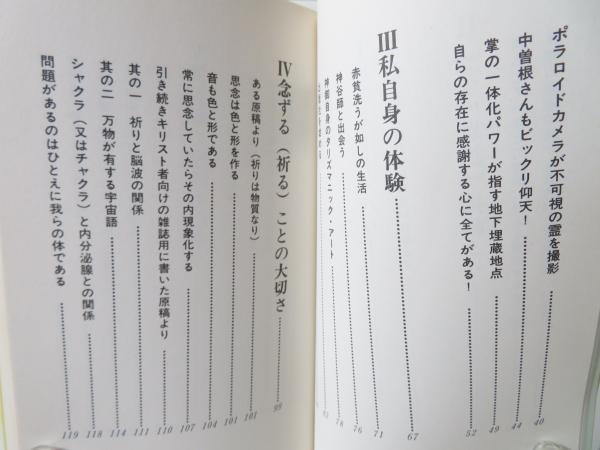 ポラロイドカメラが不可視の霊を撮影 40
中曽根さんもビックリ仰天! 44
掌の一体化パワーが指す地下埋蔵地点 49
自らの存在に感謝する心に全てがある! 52
III 私自身の体験 67
赤貧洗うが如しの生活 71
神谷師と出会う 76
神御自身のタリズマニック・アート 78
IV 念ずる(祈る)ことの大切さ 99
ある原稿より(祈りは物質なり) 101
思念は色と形を作る 101
音も色と形である 104
常に思念していたらその内現象化する 107
引き続きキリスト者向けの雑誌用に書いた原稿より 110
其の一 祈りと脳波の関係 111
其の二 万物が有する宇宙語 114
シャクラ(又はチャクラ)と内分泌腺との関係 118
問題があるのはひとえに我らの体である 119